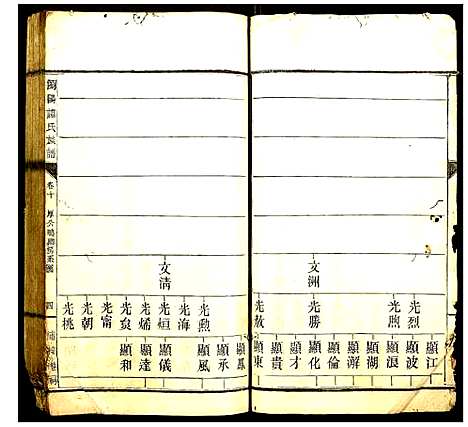 文洲
光烈
光熙
光勝
光放
顯江
顯波
顯浪
顯湖
顯澥
顯倫
顯化
顯才
顯貴
顯東
文清
光勲
光海
光垣
光烯
光炱
光甯
光朝
光桃
顯鳳
顯承
顯風
顯儀
顯達
顯和
氏族譜
卷十
四